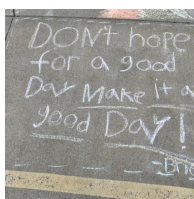 DON't hope
for a good
Day Make it a
good Day!